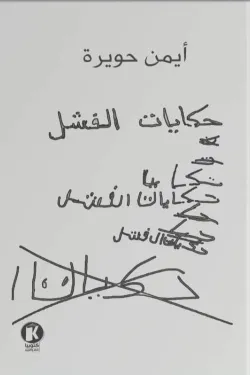 أيمن حويرة
حكايات الفشل
حكايا
حكايات الفشل
حكايات الفشل
حكايات
كتوبيا